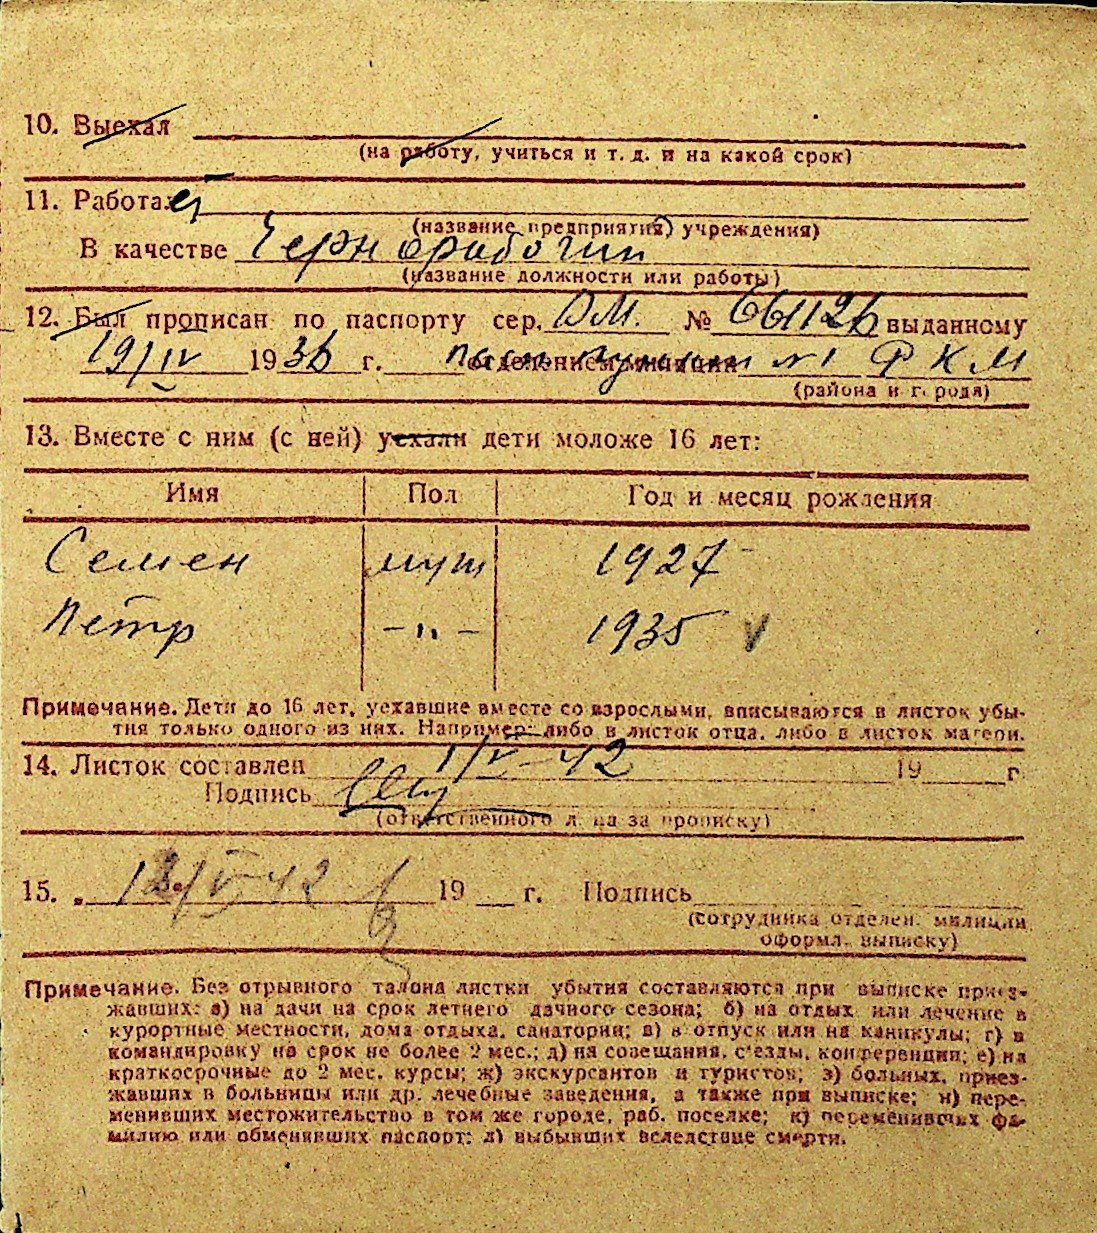 10. Выехал
(на работу, учиться и т. д. и на какой срок)
11. Работает
(название предприятия, учреждения)
В качестве Чернорабочий
(название должности или работы)
12. Был прописан по паспорту сер. ДМ. № 661126 выданному
19/IV 1936 г. паспт пунктом отделением милиции №1 РКМ
(района и города)
13. Вместе с ним (с ней) уехали дети моложе 16 лет:
Имя Пол Год и месяц рождения
Семен муж 1927
Петр –"– 1935 V
Примечание. Дети до 16 лет, уехавшие вместе со взрослыми, вписываются в листок убы-
тия только одного из них. Например: либо в листок отца, либо в листок матери.
14. Листок составлен 1/V–42 19 г.
Подпись
(ответственного лица за прописку)
15. „ 12/V–42 19 г. Подпись
(сотрудника отделен. милиции
оформл. выписку)
Примечание. Без отрывного талона листки убытия составляются при выписке приез-
жавших: а) на дачи на срок летнего дачного сезона; б) на отдых или лечение в
курортные местности, дома отдыха, санатории; в) в отпуск или на каникулы; г) в
командировку на срок не более 2 мес.; д) на совещания, с'езды, конференции; е) на
краткосрочные до 2 мес. курсы; ж) экскурсантов и туристов; з) больных, приез-
жавших в больницы или др. лечебные заведения, а также при выписке; и) пере-
менивших местожительство в том же городе, раб. поселке; к) переменивших фа-
милию или обменивших паспорт; л) выбывших вследствие смерти.